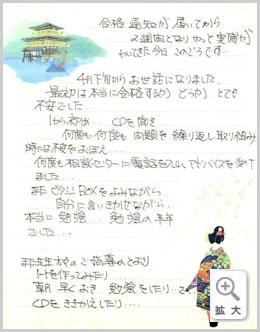 合格通知が届いてから
2週間となり やっと実感が
わいてきた今日このごろです…
4月下旬からお世話になりました。
最初は本当に合格するか どうか とても
不安でした…
1から初め… CDを聞き
何度も何度も 問題を 繰り返し取り組み
時には不安をおぼえ…
何度も相談センターに電話を入れ アドバイスを受け
ました…
また ビタミンBOXをよみながら
自分に言いきかせながら
本当に 勉強… 勉強の毎日
でした…
また先生方の ご指導のとおり
ノートを作ってみたり…
朝 早くおき 勉強をしたり…
CDを ききかえしたり…
拡大